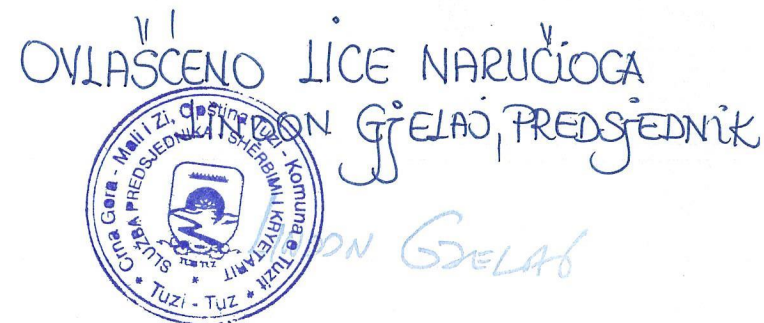 OVLAŠĆENO LICE NARUČIOCA
LINDON GJELAJ, PREDSJEDNIK
Crna Gora - Mali i Zi, Opština Tuzi - Komuna e Tuzit
SLUŽBA PREDSJEDNIKA - SHËRBIMI I KRYETARIT
* Tuzi - Tuz *
GJELAJ